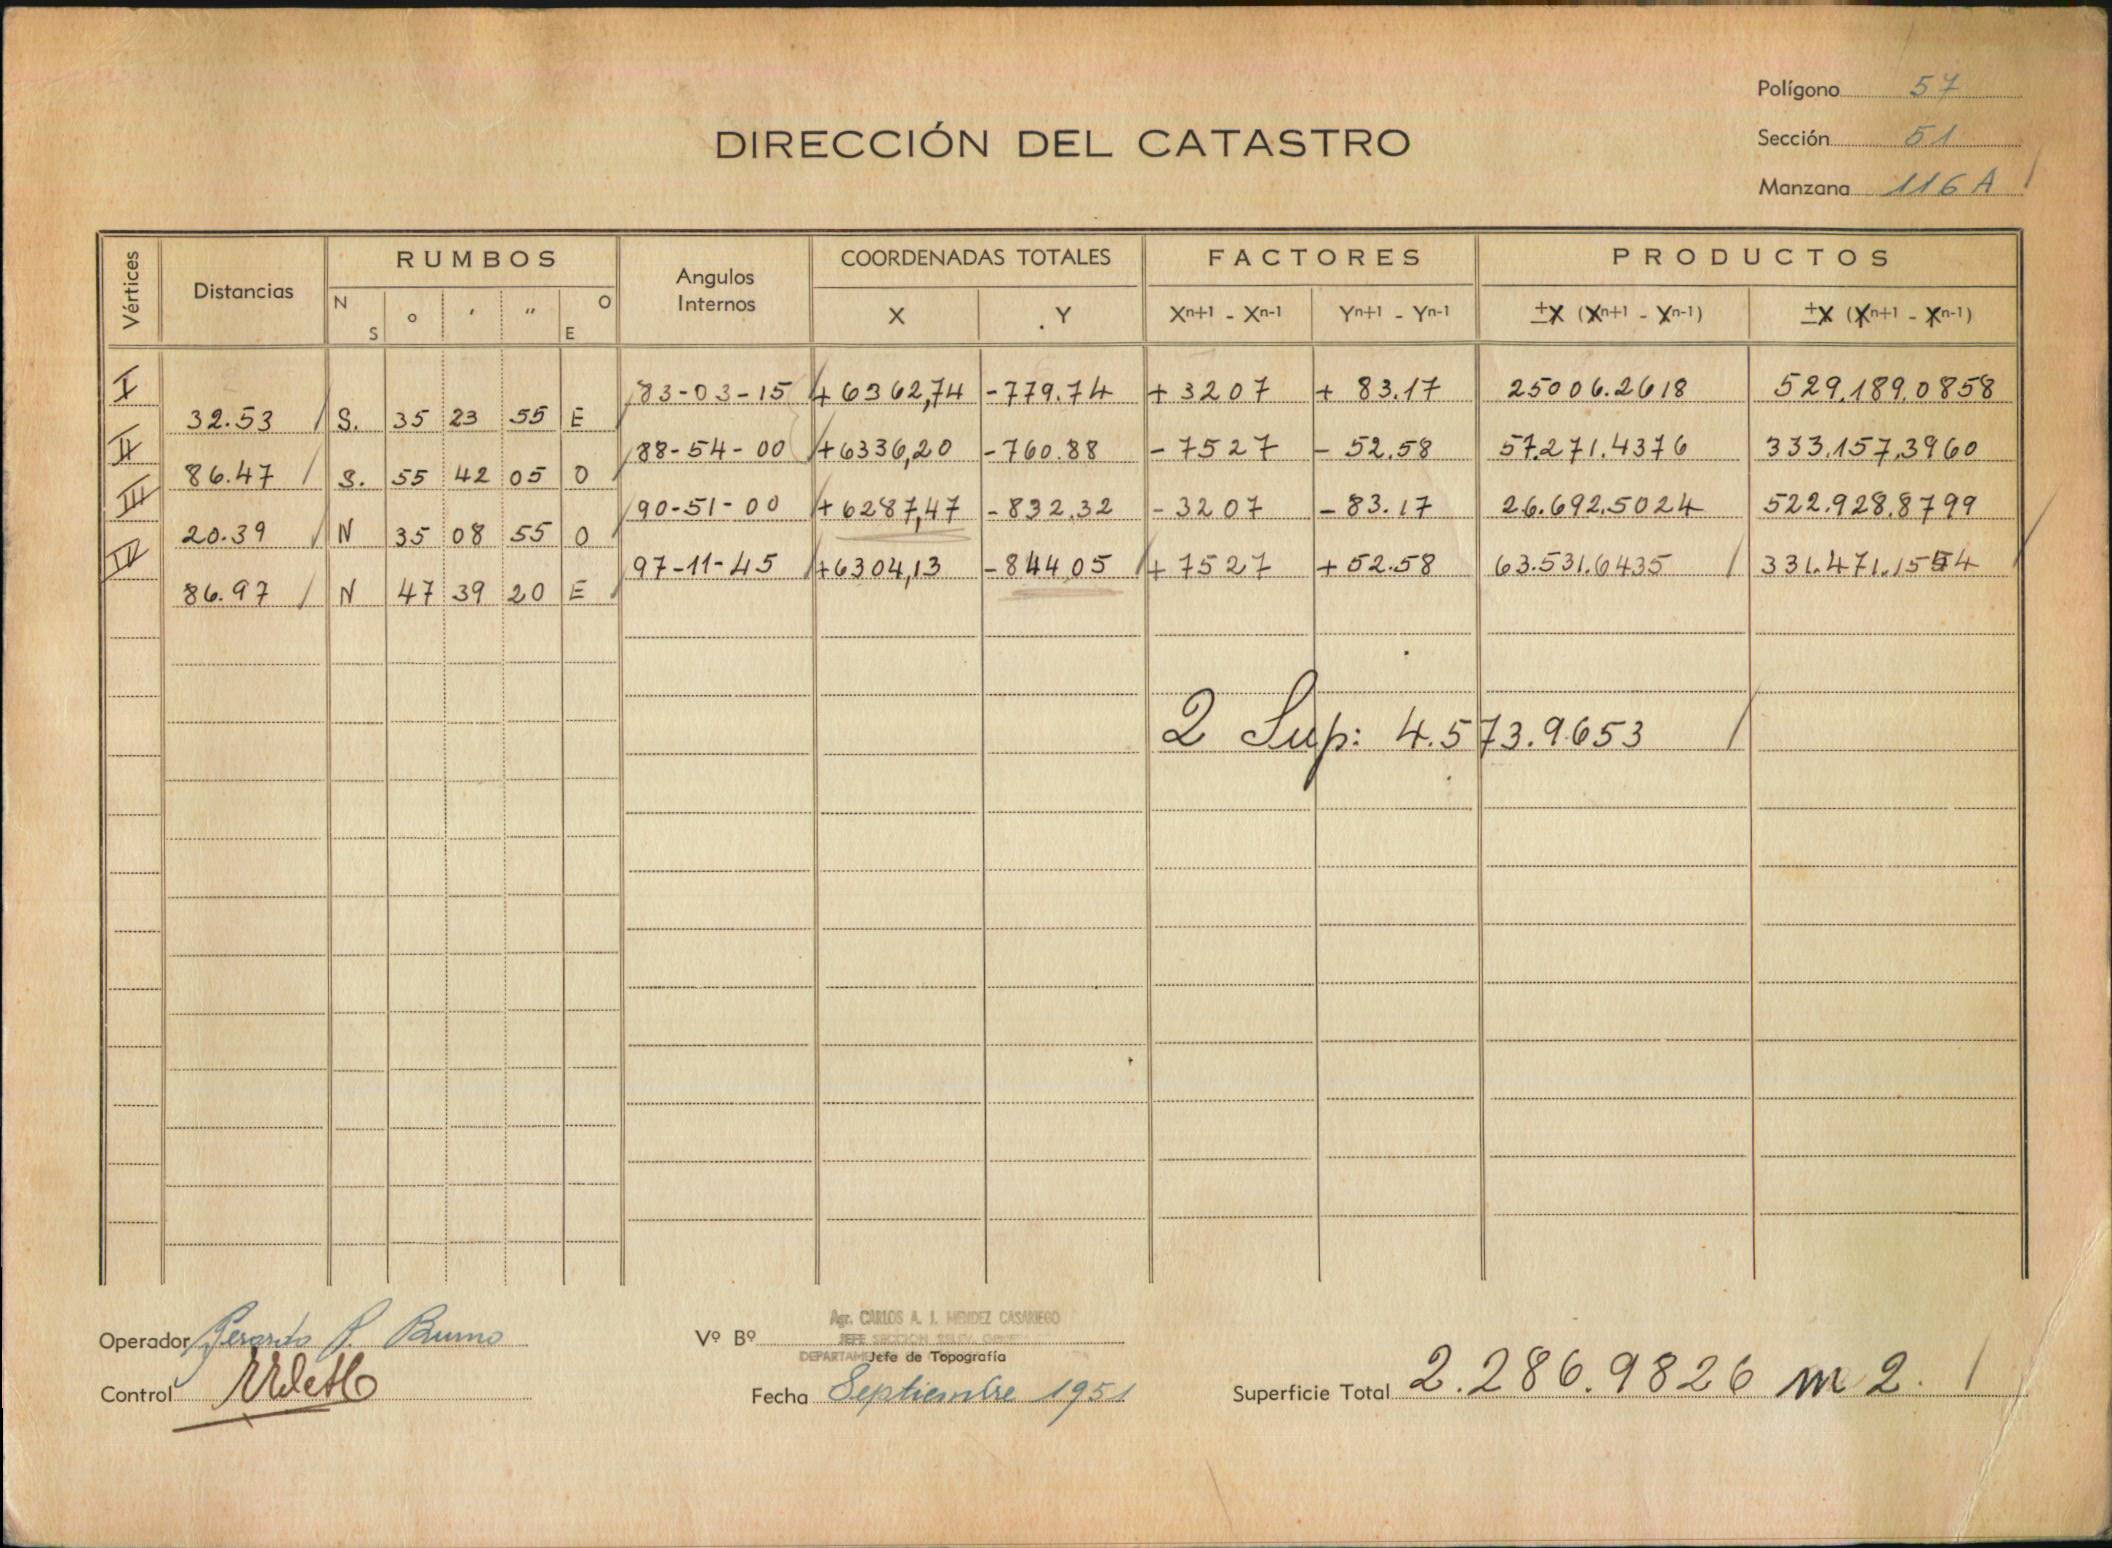 Polígono 57
DIRECCIÓN DEL CATASTRO
Sección 51
Manzana 116 A
Vértices Distancias RUMBOS Angulos Internos COORDENADAS TOTALES FACTORES PRODUCTOS
N S ° ' " O E X Y Xn+1 - Xn-1 Yn+1 - Yn-1 ±X (Xn+1 - Xn-1) ±X (Xn+1 - Xn-1)
I 83-03-15 +6362,74 -779.74 +3207 + 83.17 25006.2618 529.189.0858
32.53 S. 35 23 55 E
II 88-54-00 +6336,20 -760.88 -7527 - 52.58 57.271.4376 333.157.3960
86.47 S. 55 42 05 O
III 90-51-00 +6287,47 -832.32 -3207 -83.17 26.692.5024 522.928.8799
20.39 N 35 08 55 O
IV 97-11-45 +6304,13 -844,05 +7527 +52.58 63.531.6435 331.471.1554
86.97 N 47 39 20 E
2 Sup: 4.573.9653
Agr. CARLOS A. J. MENDEZ CASARIEGO
Operador Gerardo P. Bruno Vº Bº JEFE SECCION
DEPARTAME Jefe de Topografía
Control Fecha Septiembre 1951 Superficie Total 2.286.9826 m2.